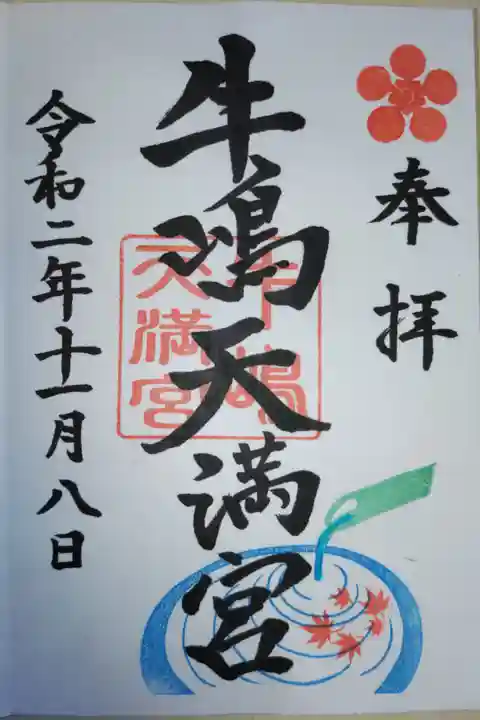 奉拝
牛嶋天満宮
牛嶋
天満宮
令和二年十一月八日